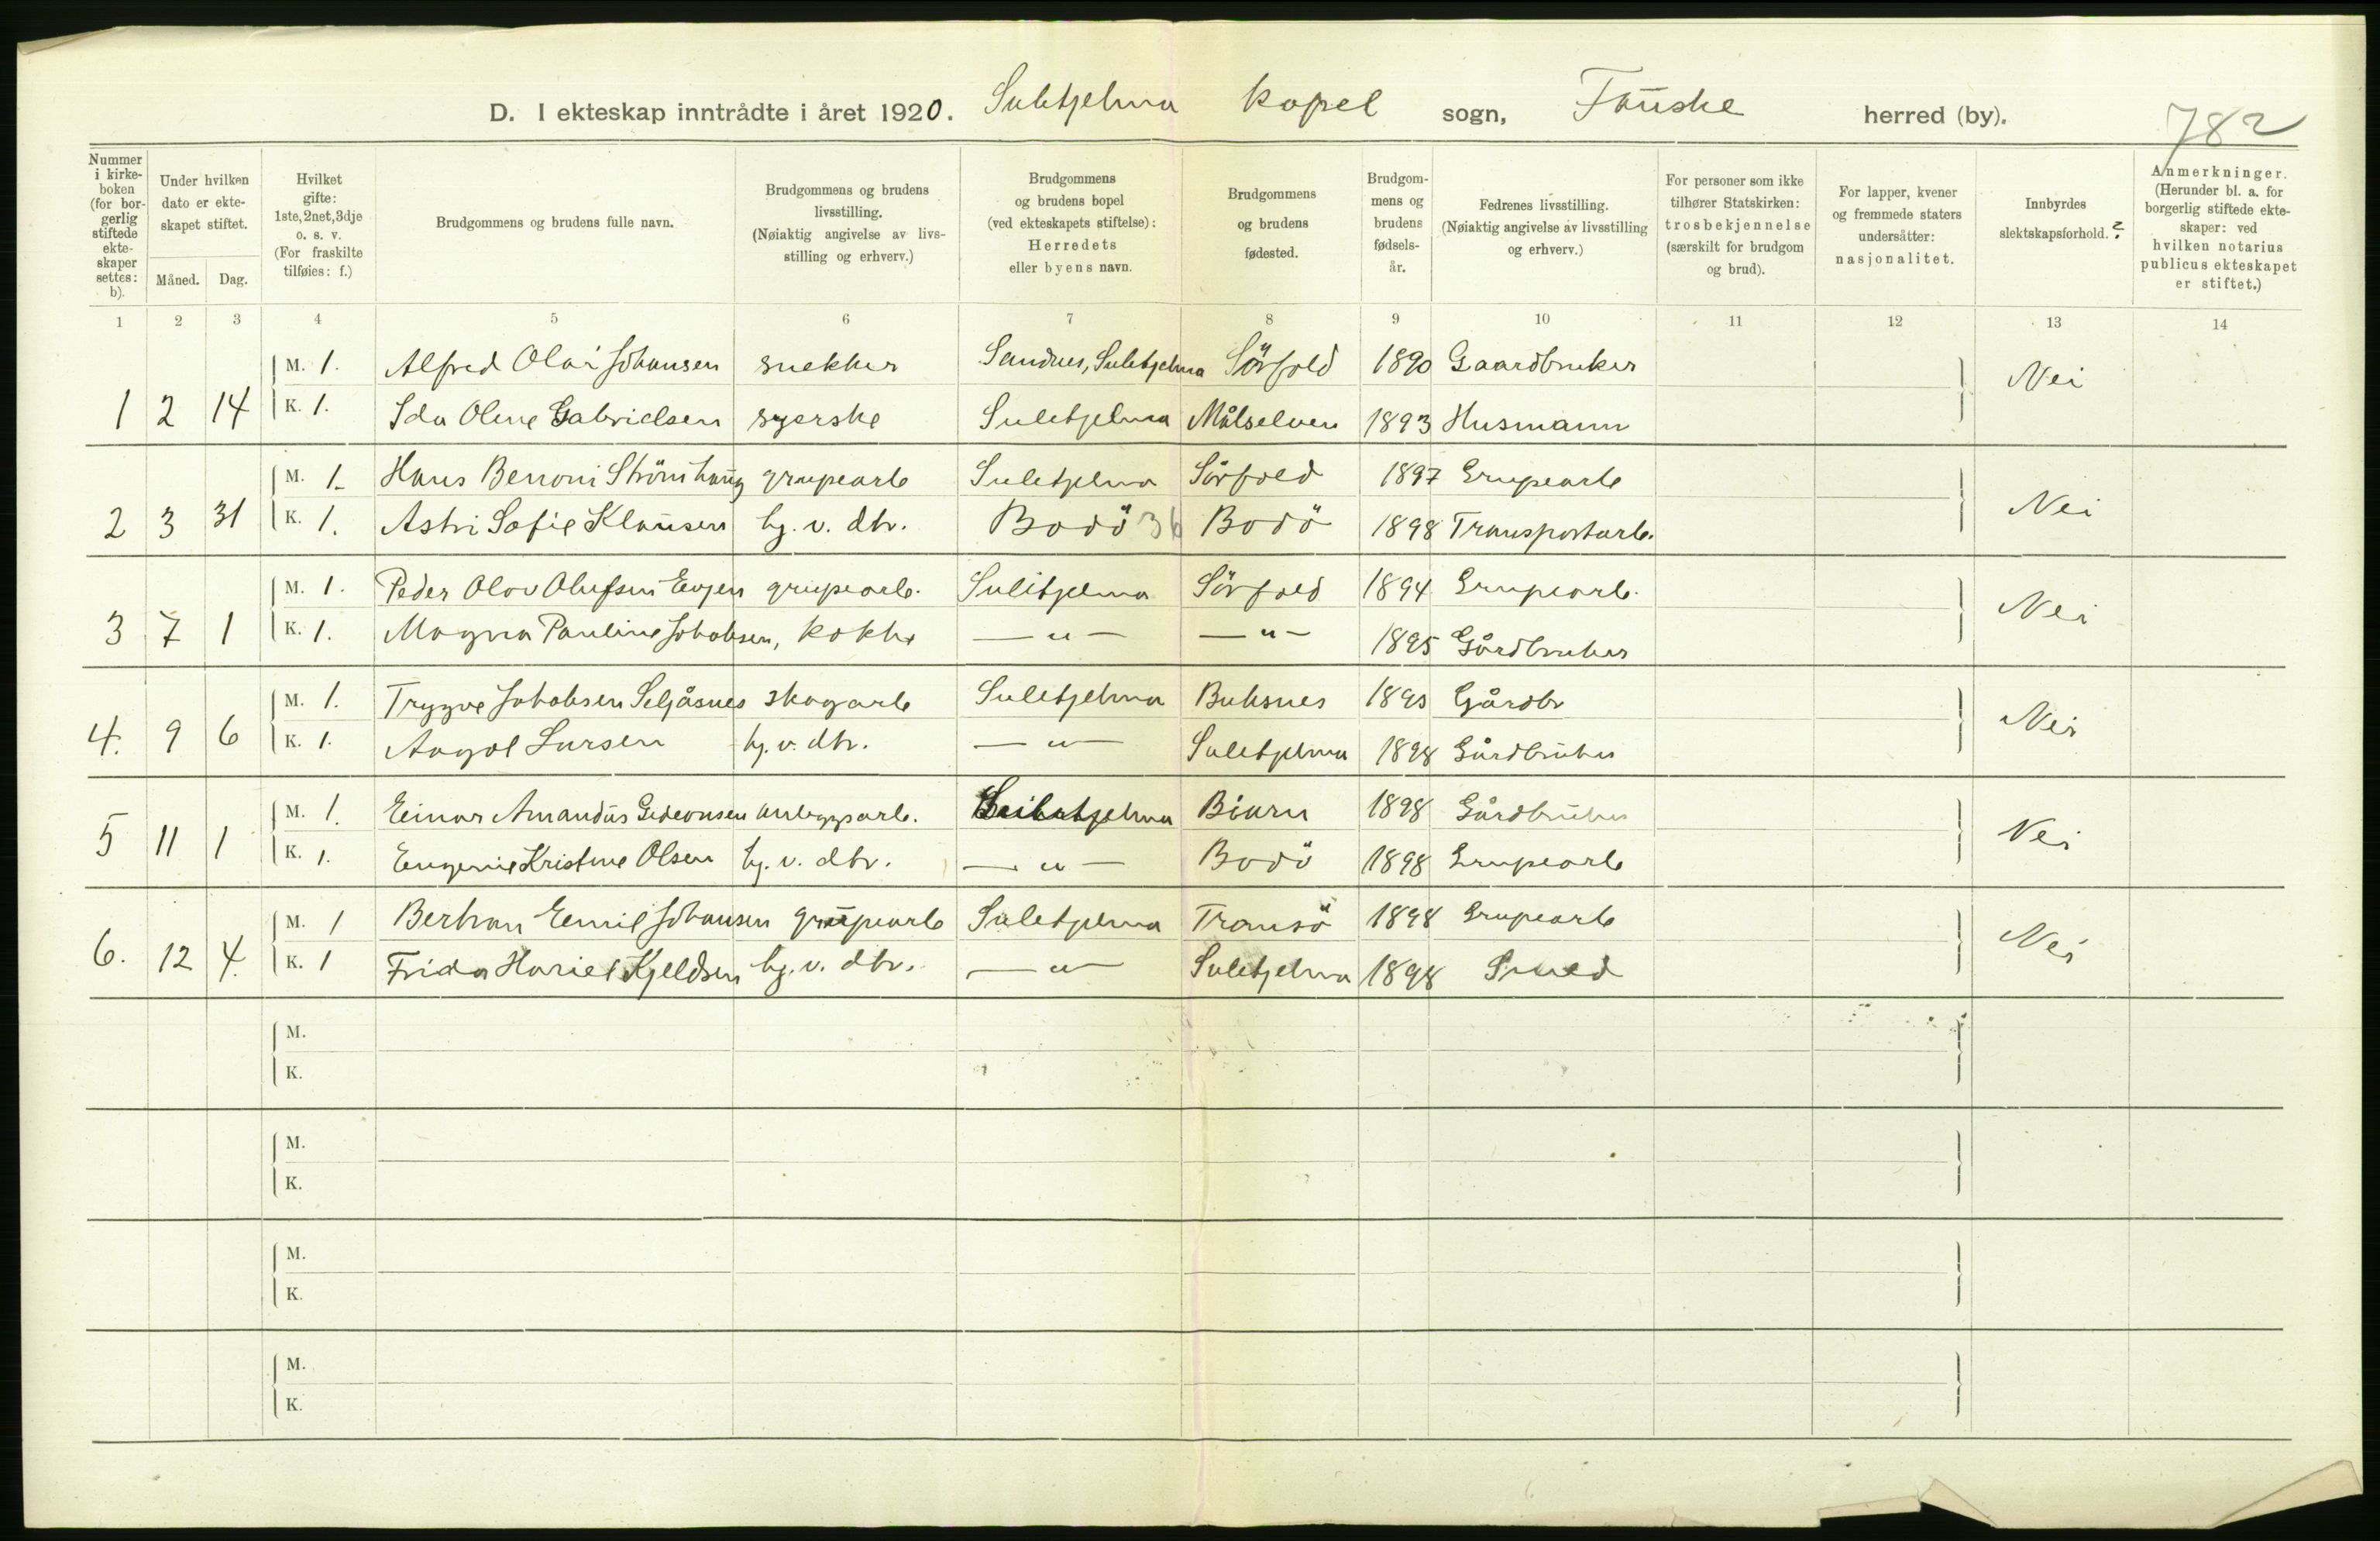 D. I ekteskap inntrådte i året 1920. Sulitjelma kapel sogn, Fauske herred (by). 782
Nummer i kirkeboken (for borgerlig stiftede ekteskaper settes: b).
Under hvilken dato er ekteskapet stiftet.
Måned. Dag.
Hvilket gifte: 1ste, 2net, 3dje o. s. v. (For fraskilte tilføies: f.)
Brudgommens og brudens fulle navn.
Brudgommens og brudens livsstilling. (Nøiaktig angivelse av livsstilling og erhverv.)
Brudgommens og brudens bopel (ved ekteskapets stiftelse): Herredets eller byens navn.
Brudgommens og brudens fødested.
Brudgommens og brudens fødselsår.
Fedrenes livsstilling. (Nøiaktig angivelse av livsstilling og erhverv.)
For personer som ikke tilhører Statskirken: trosbekjennelse (særskilt for brudgom og brud).
For lapper, kvener og fremmede staters undersåtter: nasjonalitet.
Innbyrdes slektskapsforhold.?
Anmerkninger. (Herunder bl. a. for borgerlig stiftede ekteskaper: ved hvilken notarius publicus ekteskapet er stiftet.)
1 2 3 4 5 6 7 8 9 10 11 12 13 14
M. 1. Alfred Olai Johansen snekker Sandnes, Sulitjelma Sörfold 1890 Gaardbruker
1 2 14 K. 1. Ida Oline Gabrielsen syerske Sulitjelma Målselven 1893 Husmann Nei
M. 1. Hans Benoni Strömhaug grupearb Sulitjelma Sörfold 1897 Grupearb
2 3 31 K. 1. Astri Sofie Klausen hj. v. dtr. Bodö 36 Bodö 1898 Transportarb. Nei
M. 1. Peder Olav Olufsen Evjen grupearb. Sulitjelma Sörfold 1894 Grupearb.
3 7 1 K. 1. Magna Pauline Jakobsen, kokke — " — — " — 1895 Gårdbruker Nei
M. 1. Trygve Jakobsen Seljåsnes skogarb Sulitjelma Buksnes 1893 Gårdbr
4. 9 6 K. 1. Aagot Larsen hj. v. dtr. — " — Sulitjelma 1898 Gårdbruker Nei
M. 1. Einar Amandus Gideonsen anleggsarb. Sulitjelma Beiarn 1898 Gårdbruker
5 11 1 K. 1. Eugenie Kristine Olsen hj. v. dtr. — " — Bodö 1898 Grupearb Nei
M. 1 Bertran Emil Johansen grupearb Sulitjelma Tromsö 1898 Grupearb
6. 12 4. K. 1 Frida Hariet Kjeldsen hj. v. dtr. — " — Sulitjelma 1898 Smed Nei
M.
K.
M.
K.
M.
K.
M.
K.